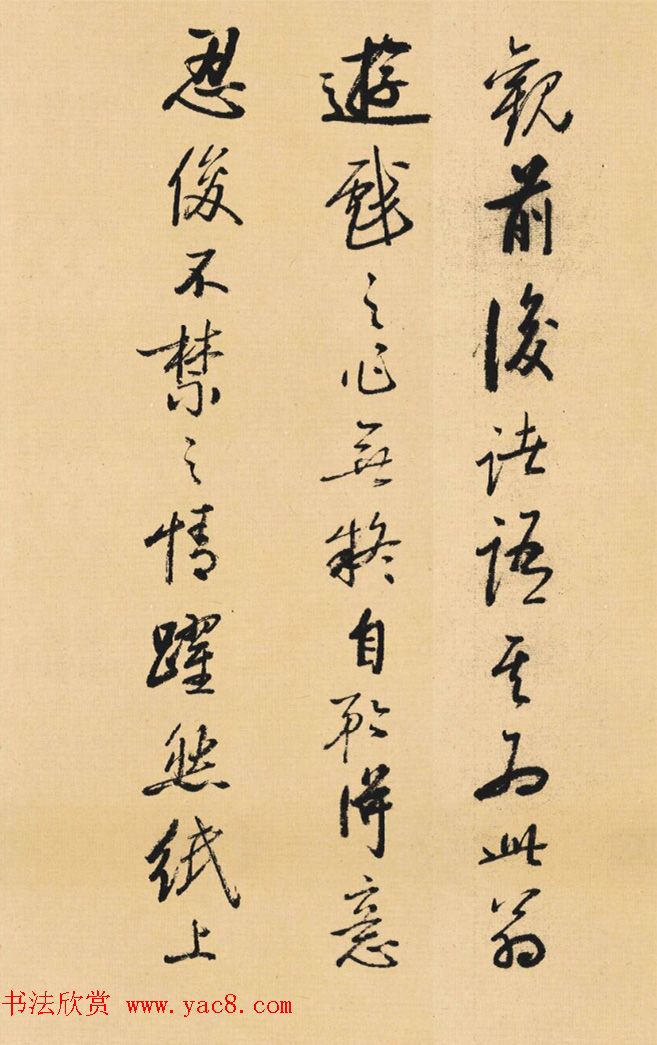 觀前後諸語其為此翁
遊戲之作無疑自矜得意
忍俊不禁之情躍然紙上
书法欣赏 www.yac8.com